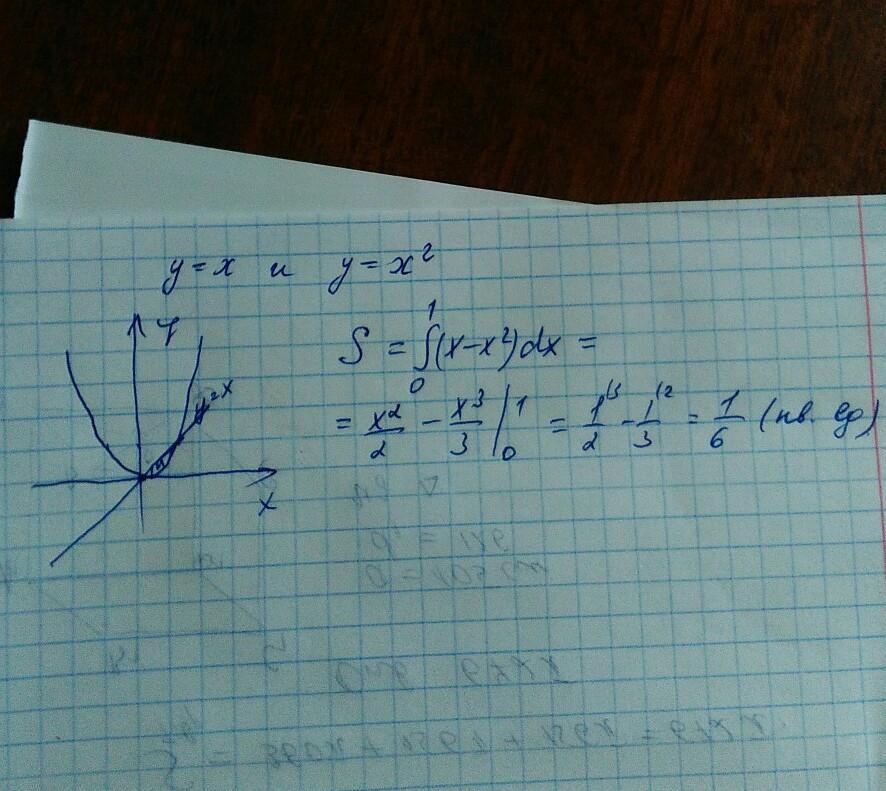 y = x и y = x²
y
y = x
x
S = ∫₀¹ (x - x²) dx =
= x²/2 - x³/3 |₀¹ = 1\3/2 - 1\2/3 = 1/6 (кв. ед)